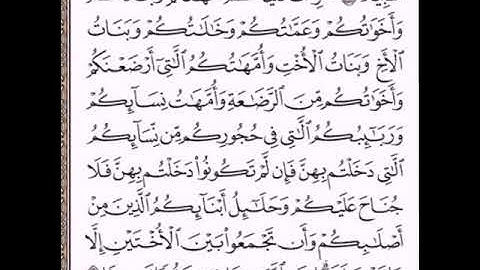 وَأَخَوَٰتُكُمْ وَعَمَّٰتُكُمْ وَخَٰلَٰتُكُمْ وَبَنَاتُ
ٱلْأَخِ وَبَنَاتُ ٱلْأُخْتِ وَأُمَّهَٰتُكُمُ ٱلَّٰتِىٓ أَرْضَعْنَكُمْ
وَأَخَوَٰتُكُم مِّنَ ٱلرَّضَٰعَةِ وَأُمَّهَٰتُ نِسَآئِكُمْ
وَرَبَٰٓئِبُكُمُ ٱلَّٰتِى فِى حُجُورِكُم مِّن نِّسَآئِكُمُ
ٱلَّٰتِى دَخَلْتُم بِهِنَّ فَإِن لَّمْ تَكُونُوا۟ دَخَلْتُم بِهِنَّ فَلَا
جُنَاحَ عَلَيْكُمْ وَحَلَٰٓئِلُ أَبْنَآئِكُمُ ٱلَّذِينَ مِنْ
أَصْلَٰبِكُمْ وَأَن تَجْمَعُوا۟ بَيْنَ ٱلْأُخْتَيْنِ إِلَّا